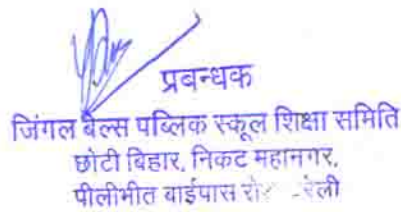 प्रबन्धक
जिंगल बैल्स पब्लिक स्कूल शिक्षा समिति
छोटी बिहार, निकट महानगर,
पीलीभीत बाईपास